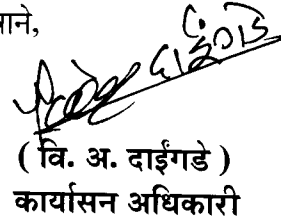 ाने,
( वि. अ. दाईंगडे )
कार्यासन अधिकारी